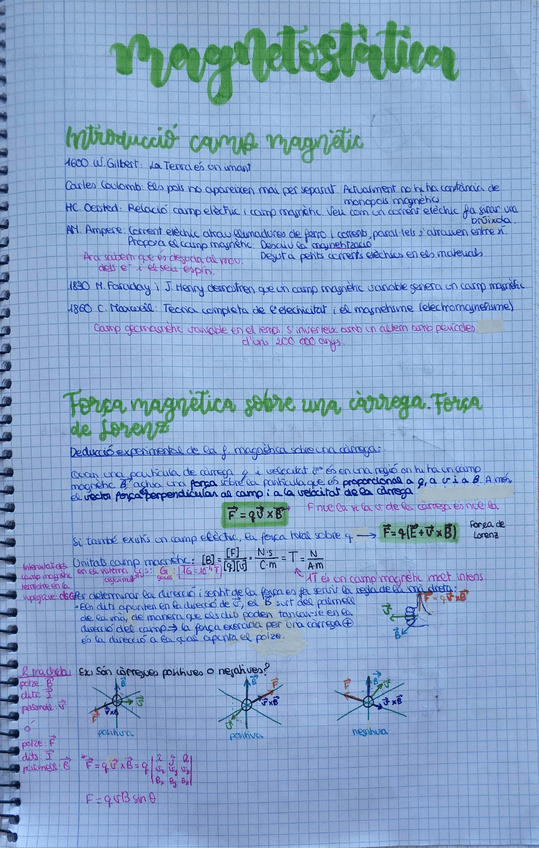 magnetostàtica
Introducció camp magnètic
1600 W. Gilbert: La Terra és un imant
Carles Coulomb: Els pols no apareixen mai per separat. Actualment no hi ha constància de
monopols magnètics
HC. Oersted: Relació camp elèctric i camp magnètic. Veu com un corrent elèctric fa girar una
brúixola
AM. Ampere: Corrent elèctric atrau llimadures de ferro i corrents paral·lels s'atrauen entre si
Proposa el camp magnètic. Descriu la magnetització
Degut a petits corrents elèctrics en els materials
Ara sabem que és degut al mov.
dels e⁻ i el seu espín.
M. Faraday i J. Henry demostren que un camp magnètic variable genera un camp magnètic
1860 C. Maxwell: Teoria completa de l'electricitat i el magnetisme (electromagnetisme)
Camp geomagnètic variable en el temps. S'inverteix amb un altern amb períodes
d'uns 200 000 anys.
Força magnètica sobre una càrrega. Força
de Lorenz
Deducció experimental de la f. magnètica sobre una càrrega:
Quan una partícula de càrrega q i velocitat v⃗ és en una regió on hi ha un camp
magnètic B⃗, actua una força sobre la partícula que és proporcional a q, a v i a B. A més,
el vector força perpendicular al camp i a la velocitat de la càrrega
F⃗ = q v⃗ × B⃗
F nul·la si la v de la càrrega és nul·la
Si també existís un camp elèctric, la força total sobre q → F⃗ = q(E⃗ + v⃗ × B⃗)
Força de
Lorenz
Unitats camp magnètic: [B] = [F]/[q][v] = N·s/C·m = T = N/A·m
Intensitat del
camp magnètic
terrestre en la
superfície
en el sistema cgs: G
gauss
1T és un camp magnètic molt intens
Per determinar la direcció i sentit de la força es fa servir la regla de la mà dreta:
- Els dits apunten en la direcció de v⃗, el B⃗ surt del palmell
de la mà, de manera que els dits poden tancar-se en la
direcció del camp → la força exercida per una càrrega ⊕
és la direcció a la qual apunta el polze.
F⃗ = q v⃗ × B⃗
v⃗
B⃗
R. mà dreta:
polze: B⃗
dits: I⃗
palmell: v⃗
ó
polze: F⃗
dits: I⃗
palmell: B⃗
Ex: Són càrregues positives o negatives?
B⃗
v⃗
F⃗
v⃗×B⃗
positiva
B⃗
F⃗
v⃗×B⃗
v⃗
positiva
F⃗
B⃗
v⃗
v⃗×B⃗
negativa
F⃗ = q v⃗ × B⃗ = q | î ĵ k̂ |
| vx vy vz |
| Bx By Bz |
F = qvB sin θ